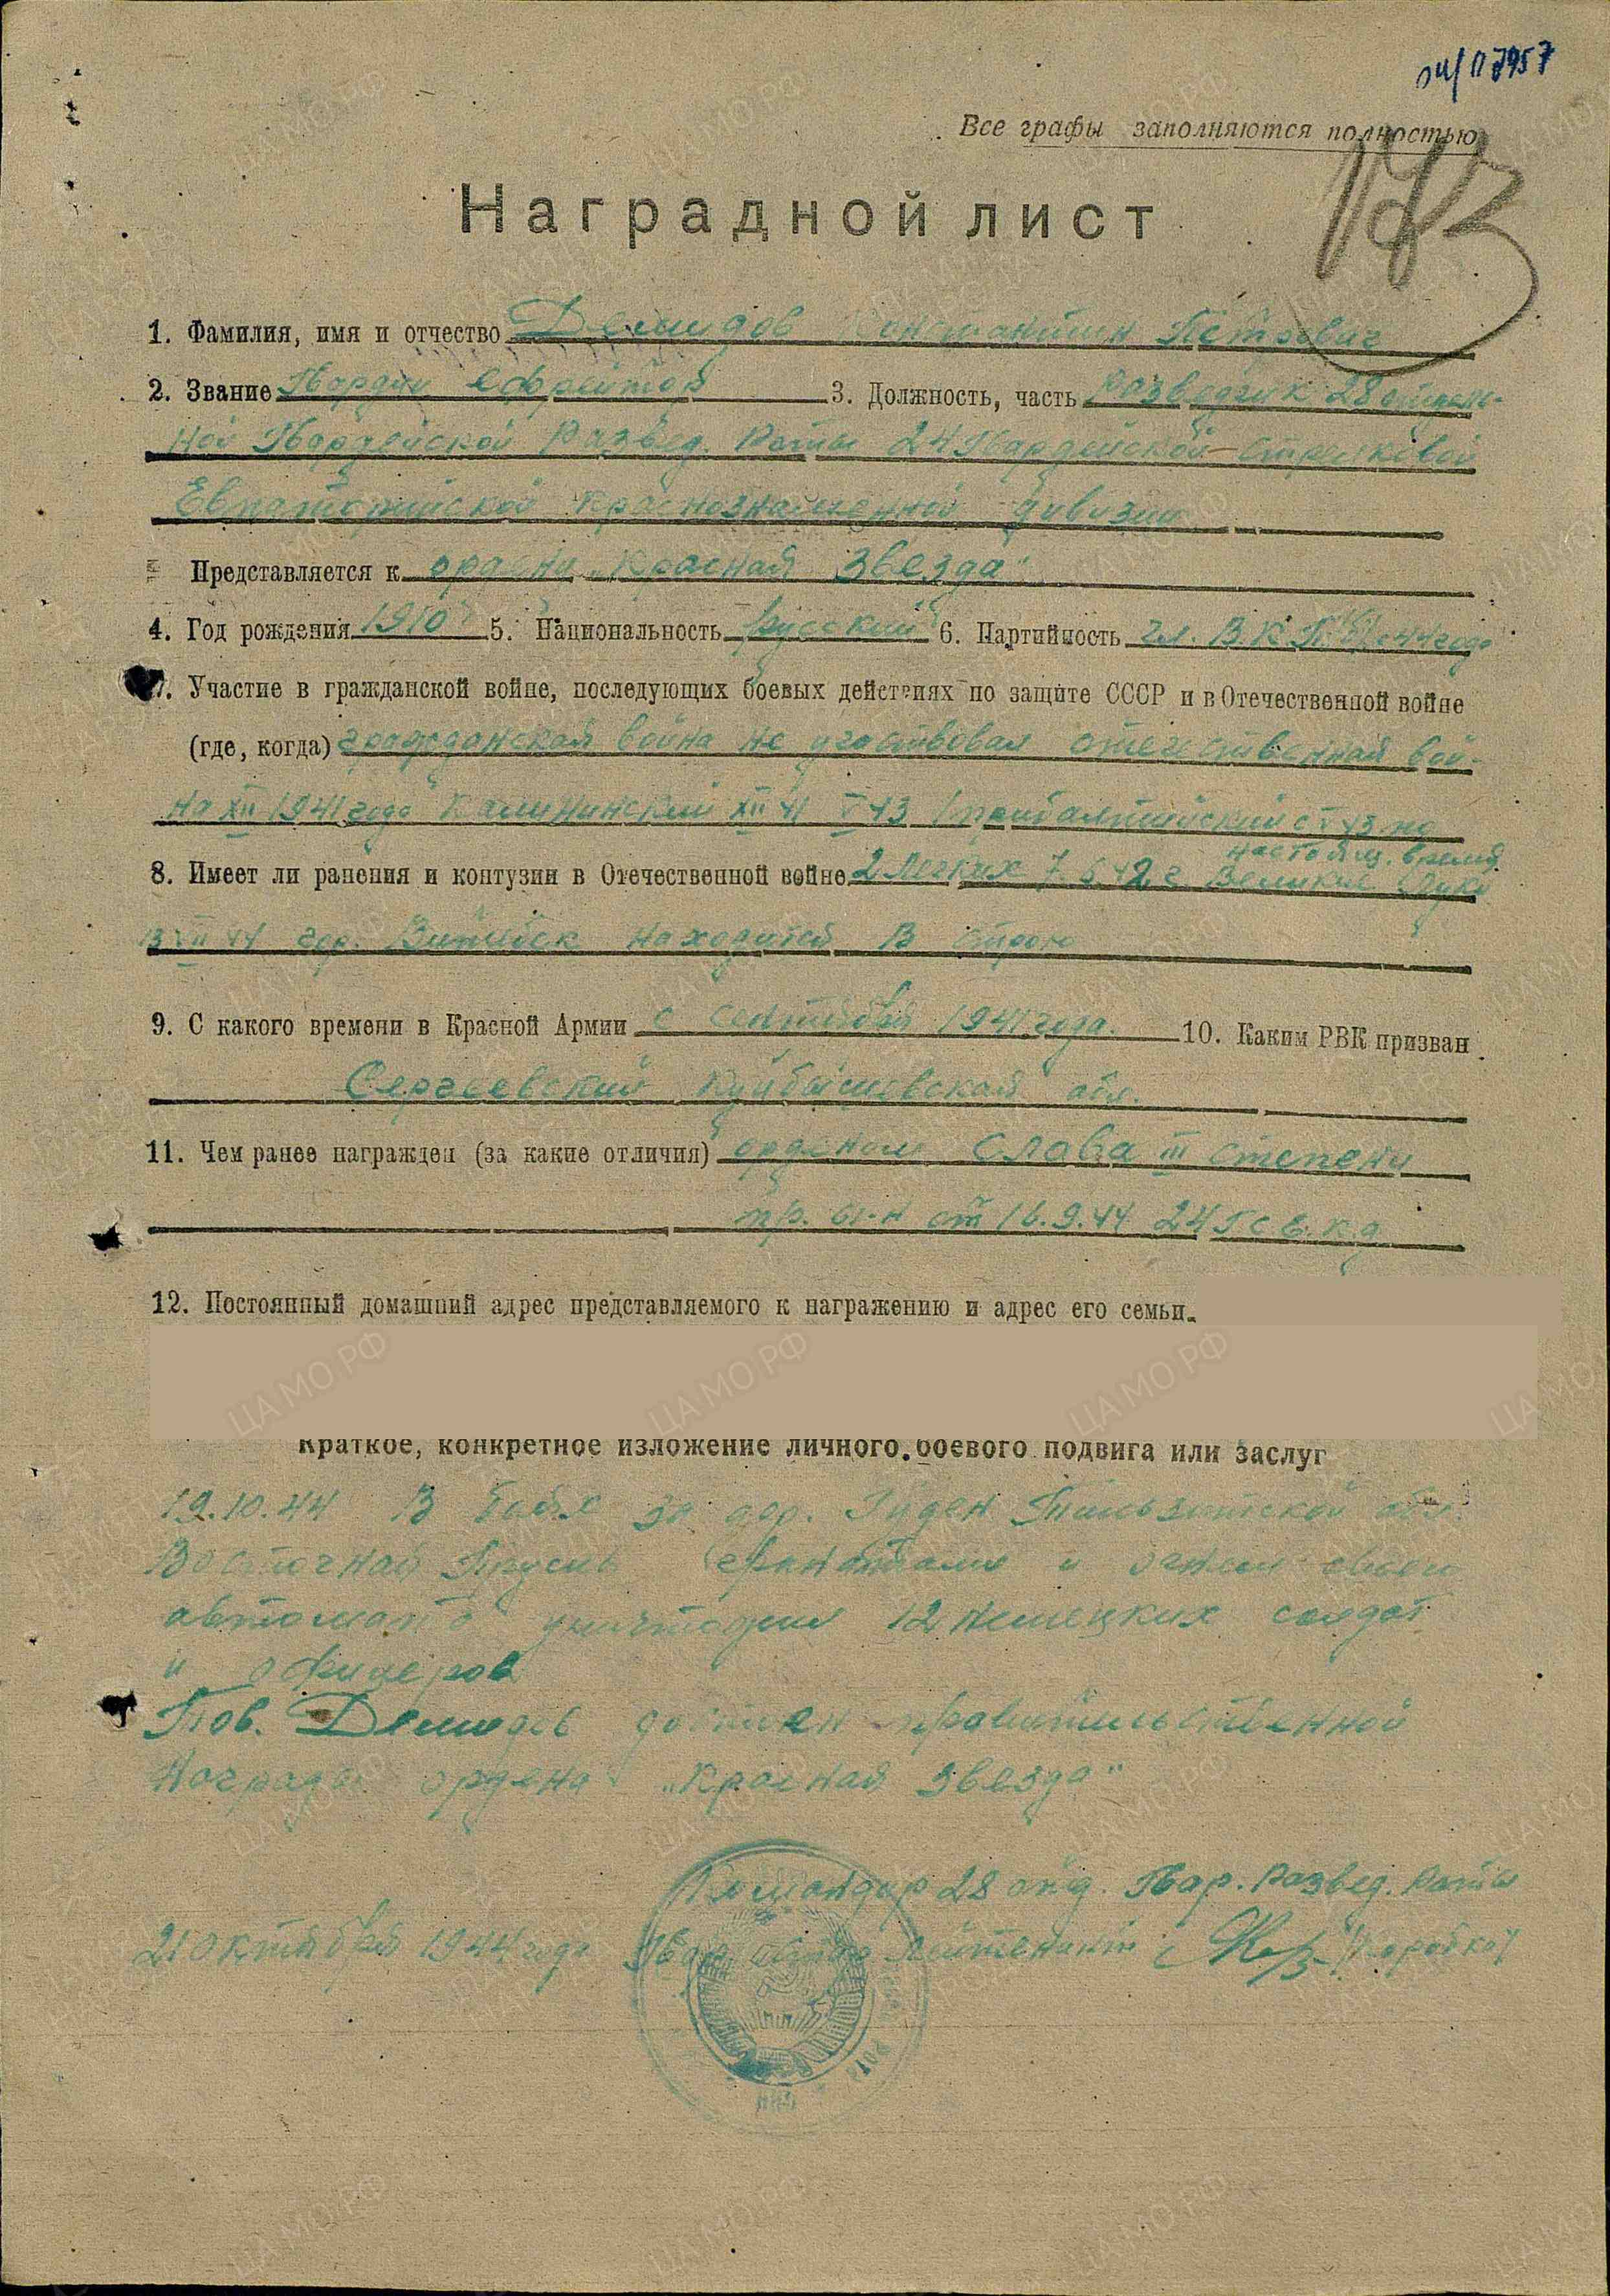 Все графы заполняются полностью
Наградной лист
1. Фамилия, имя и отчество Демидов Константин Петрович
2. Звание Гвардии ефрейтор 3. Должность, часть Разведчик 28 отдель-
ной Гвардейской Развед. Роты 24 Гвардейской Стрелковой
Евпаторийской Краснознаменной дивизии
Представляется к ордену „Красная Звезда"
4. Год рождения 1910 5. Национальность русский 6. Партийность чл. В.К.П.(б) с 44 года
7. Участие в гражданской войне, последующих боевых действиях по защите СССР и в Отечественной войне
(где, когда) гражданская война не участвовал отечественная вой-
на XII 1941 года Калининский XII 41 V 43 Прибалтийский с V 43 по
настоящ. время
8. Имеет ли ранения и контузии в Отечественной войне 2 легких 7.6.42 г. Великие Луки
13 VII 44 гор. Витебск находится в строю
9. С какого времени в Красной Армии с сентября 1941 года. 10. Каким РВК призван
Сергиевский Куйбышевская обл.
11. Чем ранее награжден (за какие отличия) орденом Слава III степени
пр. 61-н от 16.9.44 24 Г С Е. К. д
12. Постоянный домашний адрес представляемого к награжению и адрес его семьи
Краткое, конкретное изложение личного боевого подвига или заслуг
19.10.44 В боях за дер. Гуден Тильзитской обл.
Восточная Прусия гранатами и огнем своего
автомата уничтожил 12 немецких солдат
и офицеров
Тов. Демидов достоин правительственной
Награды ордена „Красная звезда"
Командир 28 отд. Гвар. Развед. Роты
21 Октября 1944 года Гвар. лейтенант (Коробко)
ЦА МО РФ